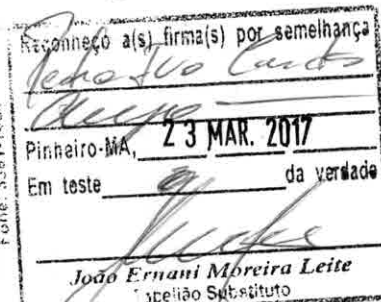 Reconheço a(s) firma(s) por semelhança
Pedro Ivo
Pinheiro-MA, 23 MAR. 2017
Em teste da verdade
João Ernani Moreira Leite
Tabelião Substituto